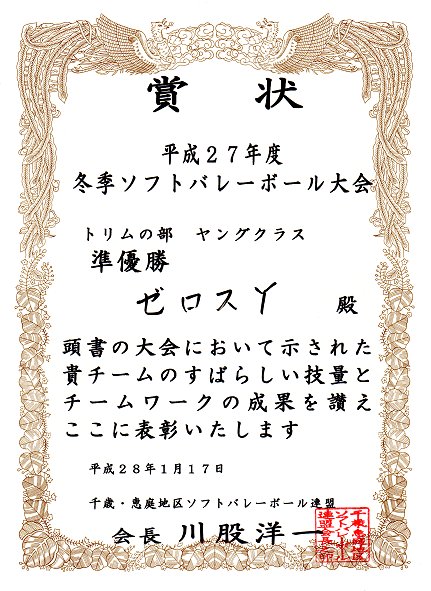 賞状
平成27年度
冬季ソフトバレーボール大会
トリムの部　ヤングクラス
準優勝
ゼロスY　殿
頭書の大会において示された
貴チームのすばらしい技量と
チームワークの成果を讃え
ここに表彰いたします
平成28年1月17日
千歳・恵庭地区ソフトバレーボール連盟
会長　川股洋一
千歳・恵庭地区
ソフトバレーボール
連盟会長之印